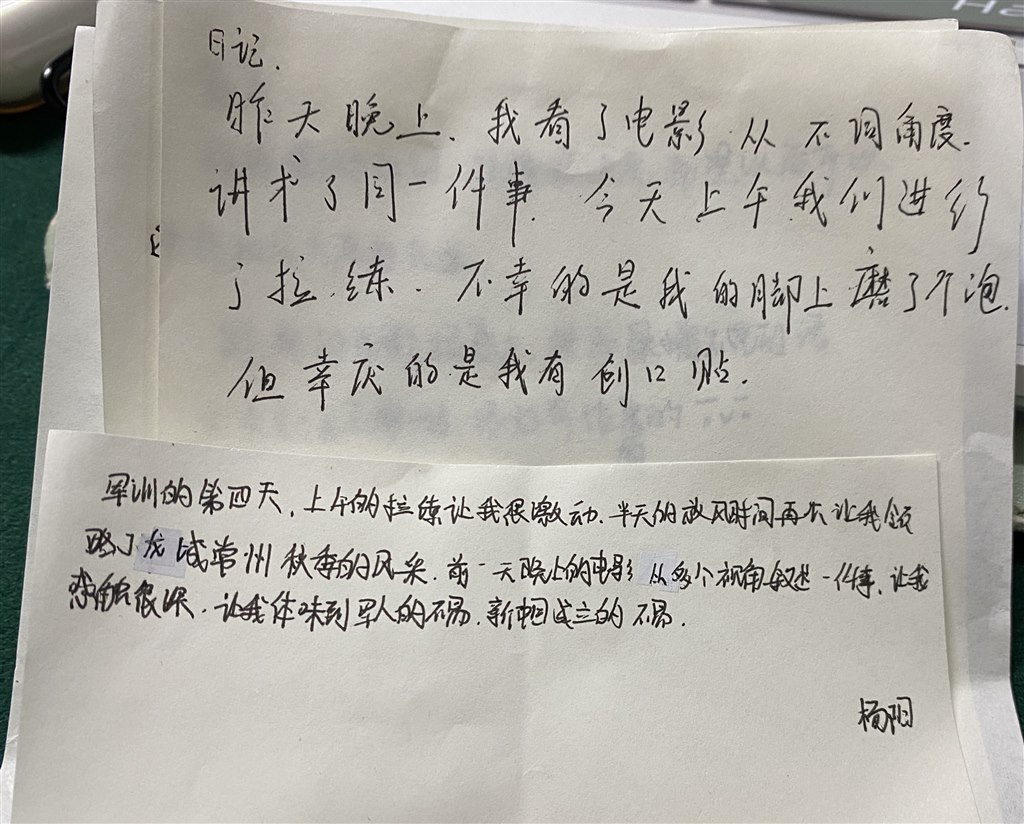 日记.
昨天晚上.我看了电影 从不同角度.
讲求了同一件事.今天上午我们进行
了拉练.不幸的是我的脚上磨了个泡.
但幸庆的是我有创口贴.
军训的第四天,上午的拉练让我很激动.半天的放风时间再次让我领
略了龙城常州秋季的风采.前一天晚上的电影从多个视角叙述一件事,让我
感触很深.让我体味到军人的不易.新中国成立的不易.
杨阳
Ha